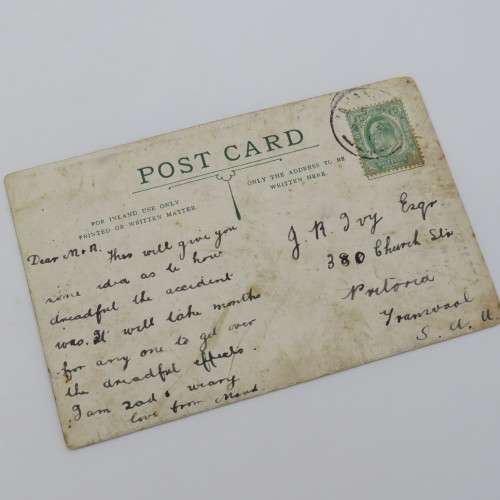 POST CARD
FOR INLAND USE ONLY
PRINTED OR WRITTEN MATTER.
ONLY THE ADDRESS TO BE
WRITTEN HERE.
Dear Mr R. This will give you
some idea as to how
dreadful the accident
was. It will take months
for any one to get over
the dreadful effects.
I am sad & weary
love from
J. R. Ivy Esqr
380 Church Str
Pretoria
Tranvaal
S. A.